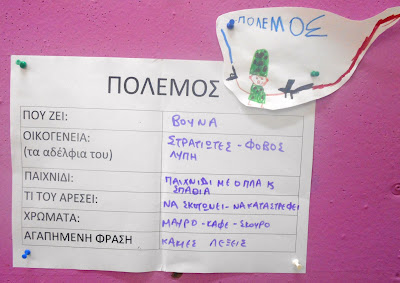 ΠΟΛΕΜΟΣ
ΠΟΛΕΜΟΣ
ΠΟΥ ΖΕΙ: ΒΟΥΝΑ
ΟΙΚΟΓΕΝΕΙΑ: ΣΤΡΑΤΙΩΤΕΣ - ΦΟΒΟΣ
(τα αδέλφια του) ΛΥΠΗ
ΠΑΙΧΝΙΔΙ: ΠΑΙΧΝΙΔΙ ΜΕ ΟΠΛΑ Κ
ΣΠΑΘΙΑ
ΤΙ ΤΟΥ ΑΡΕΣΕΙ: ΝΑ ΣΚΟΤΩΝΕΙ - ΝΑ ΚΑΤΑΣΤΡΕΦΕΙ
ΧΡΩΜΑΤΑ: ΜΑΥΡΟ - ΚΑΦΕ - ΣΚΟΥΡΟ
ΑΓΑΠΗΜΕΝΗ ΦΡΑΣΗ ΚΑΚΕΣ ΛΕΞΕΙΣ